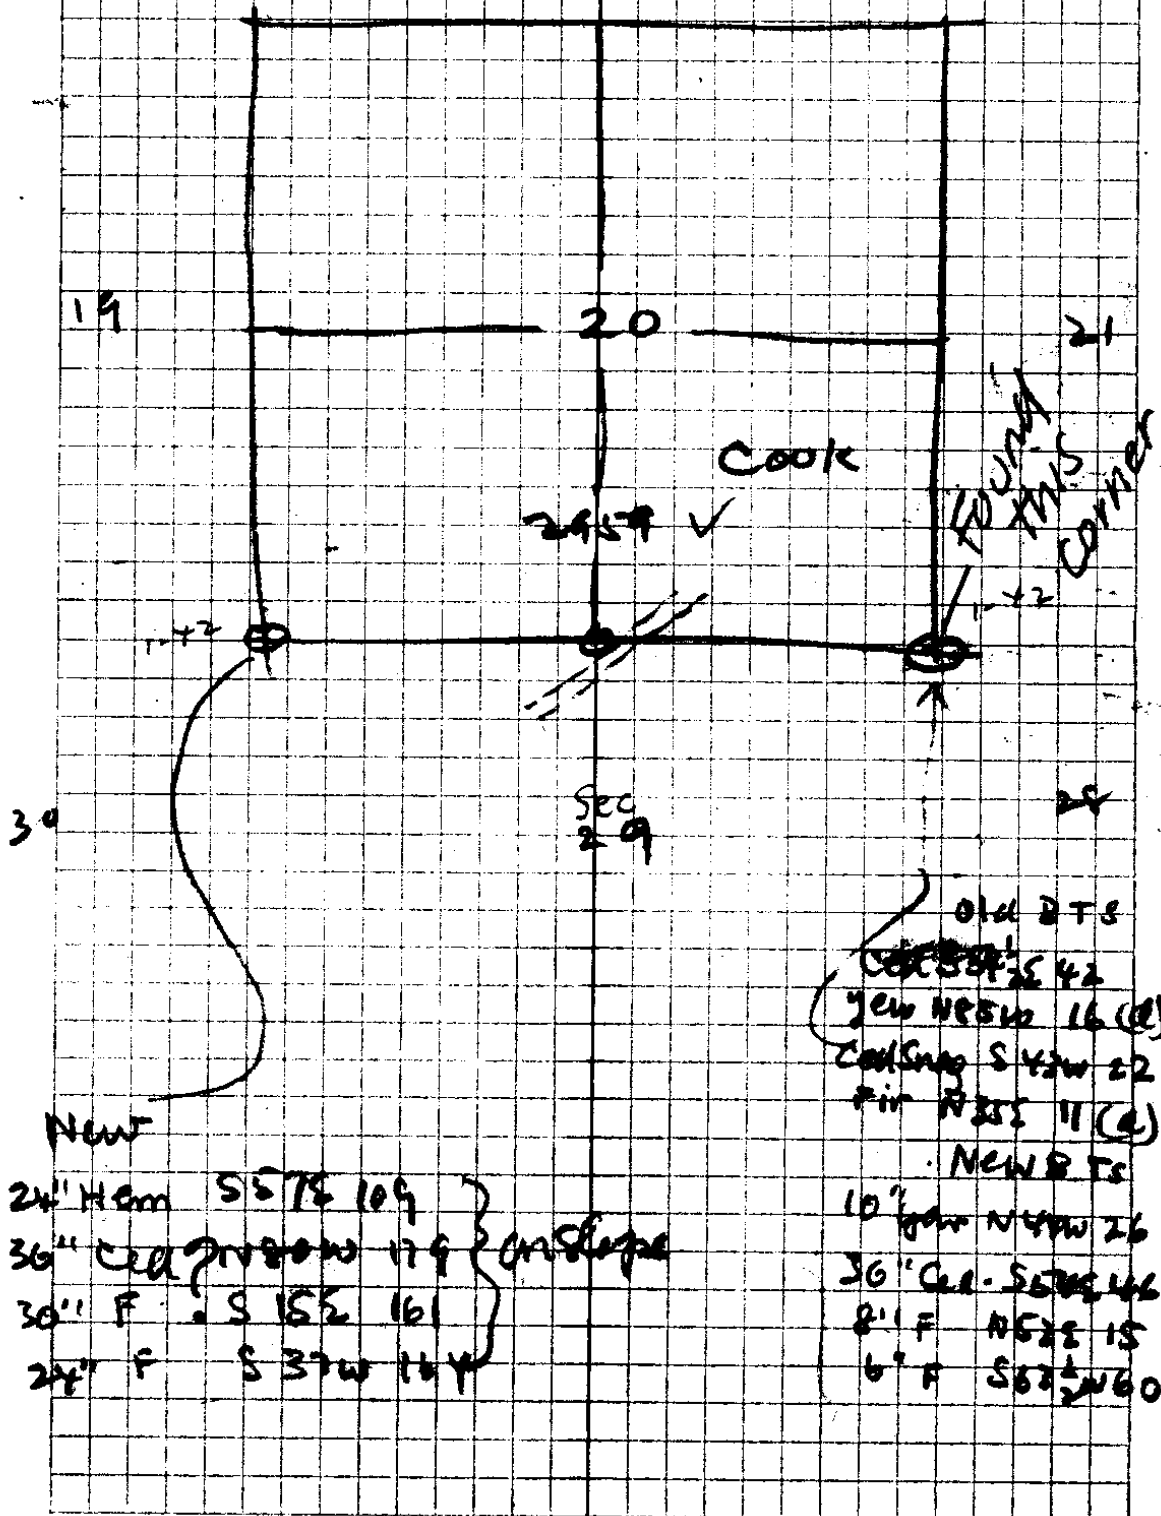 19
20
21
Cook
Found
this
corner
2959 ✓
30
Sec
29
28
Old BTS
42
yew N85W 16 (d)
Ced Snag S 43W 22
Fir N35E 11 (d)
New BTs
10" yew N48W 26
36" Ced. 46
8" F N52E 15
6" F S63½W 60
New
24" Hem S57E 109
36" Ced ? N80W 179
30" F . S 15E 161
24" F S 37W 164
on slope